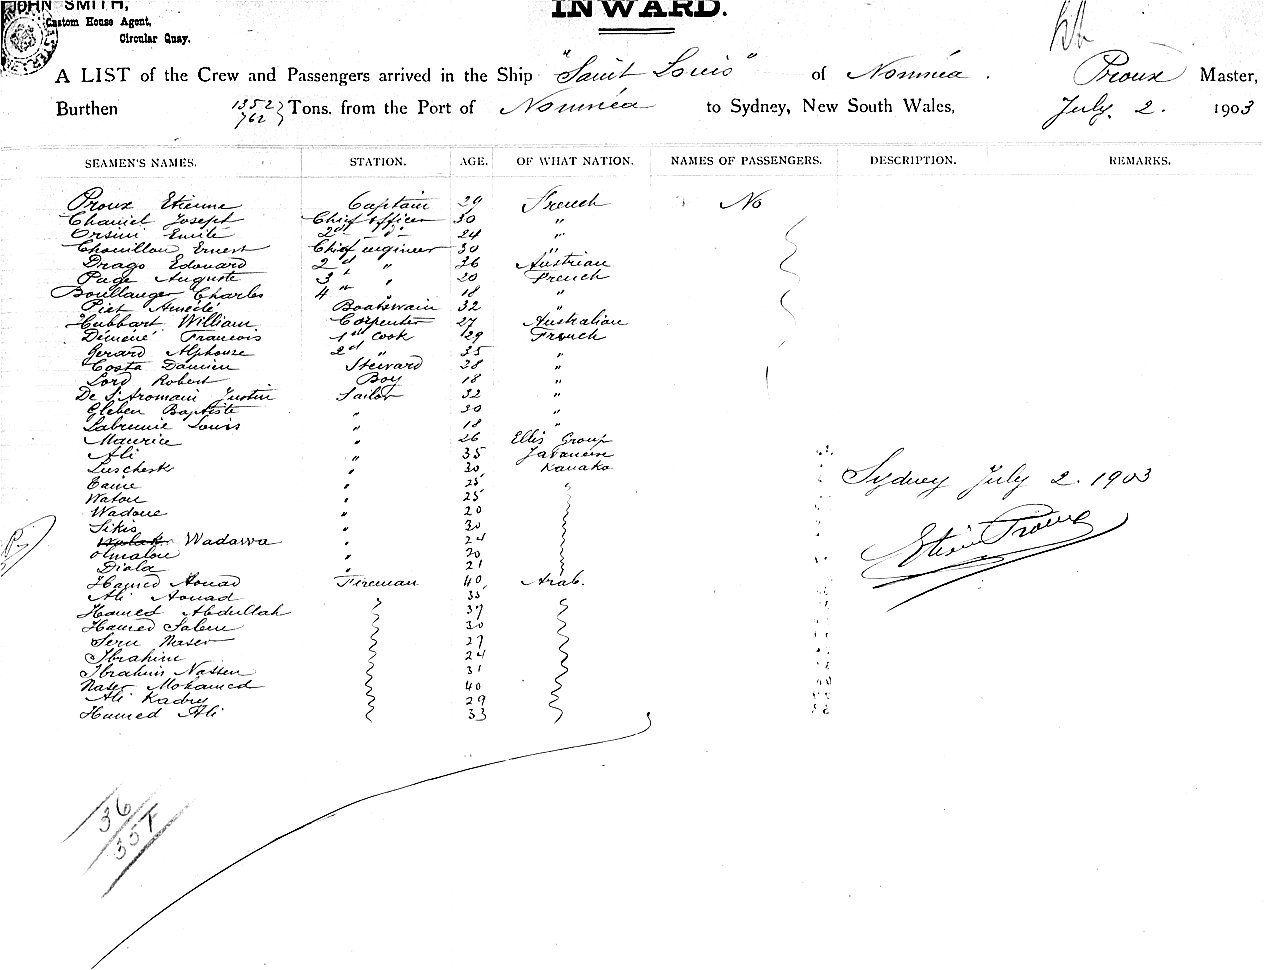 JOHN SMITH,
Custom House Agent,
Circular Quay.
INWARD.
A LIST of the Crew and Passengers arrived in the Ship "Saint Louis" of Nouméa. Proux Master,
Burthen 1352 762 Tons. from the Port of Nouméa to Sydney, New South Wales, July 2. 1903
SEAMEN'S NAMES. STATION. AGE. OF WHAT NATION. NAMES OF PASSENGERS. DESCRIPTION. REMARKS.
Proux Etienne Captain 29 French No
Chaniel Joseph Chief officer 30 "
Orsini Emile 2nd " 24 "
Chouillou Ernest Chief engineer 30 "
Drago Edouard 2d " 36 Austrian
Page Auguste 3d " 20 French
Boullanger Charles 4th " 18 "
Piet Amédé Boatswain 32 "
Hubbart William Corpenter 27 Australian
Francois 1st Cook 29 French
Gerard Alphonse 2d " 35 "
Costa Damien Steward 28 "
Lord Robert Boy 18 "
De St Aromain Justin Sailor 32 "
Baptiste " 30 "
Louis " 18 "
Maurice " 26 Ellis Group
Ali " 35 Javanese
" 30 Kanaka
" 25
Watou " 25
Wadoue " 20
Sikis " 30
Wadawa " 24
Olmalou " 20
Diala " 21
Hamed Aouad Fireman 40 Arab.
Ali Aouad 35
Hamed Abdullah 37
Hamed Salem 30
Naser 27
Ibrahim 24
Ibrahim Nassen 31
Naser Mohamed 40
Ali Kadry 29
Hamed Ali 33
Sydney July 2. 1903
Etienne Proux
36
35F